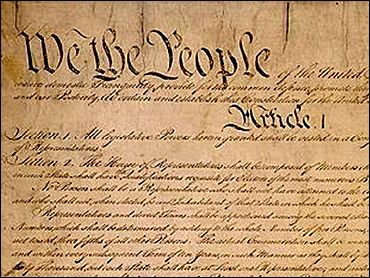 We the People of the United
insure domestic Tranquility, provide for the common defence, promote the
and our Posterity, do ordain and establish this Constitution for the United
Article. I
Section. 1. All legislative Powers herein granted shall be vested in a Con
of Representatives.
Section. 2. The House of Representatives shall be composed of Members
in each State shall have Qualifications requisite for Electors of the most numerous
No Person shall be a Representative who shall not have attained to the
and who shall not, when elected, be an Inhabitant of that State in which he shall
Representatives and direct Taxes shall be apportioned among the several
Numbers, which shall be determined by adding to the whole Number of free Persons,
not taxed, three fifths of all other Persons. The actual Enumeration shall be
and within every subsequent Term of ten Years, in such Manner as they shall by
thirty Thousand, but each State shall have at Least one Representative